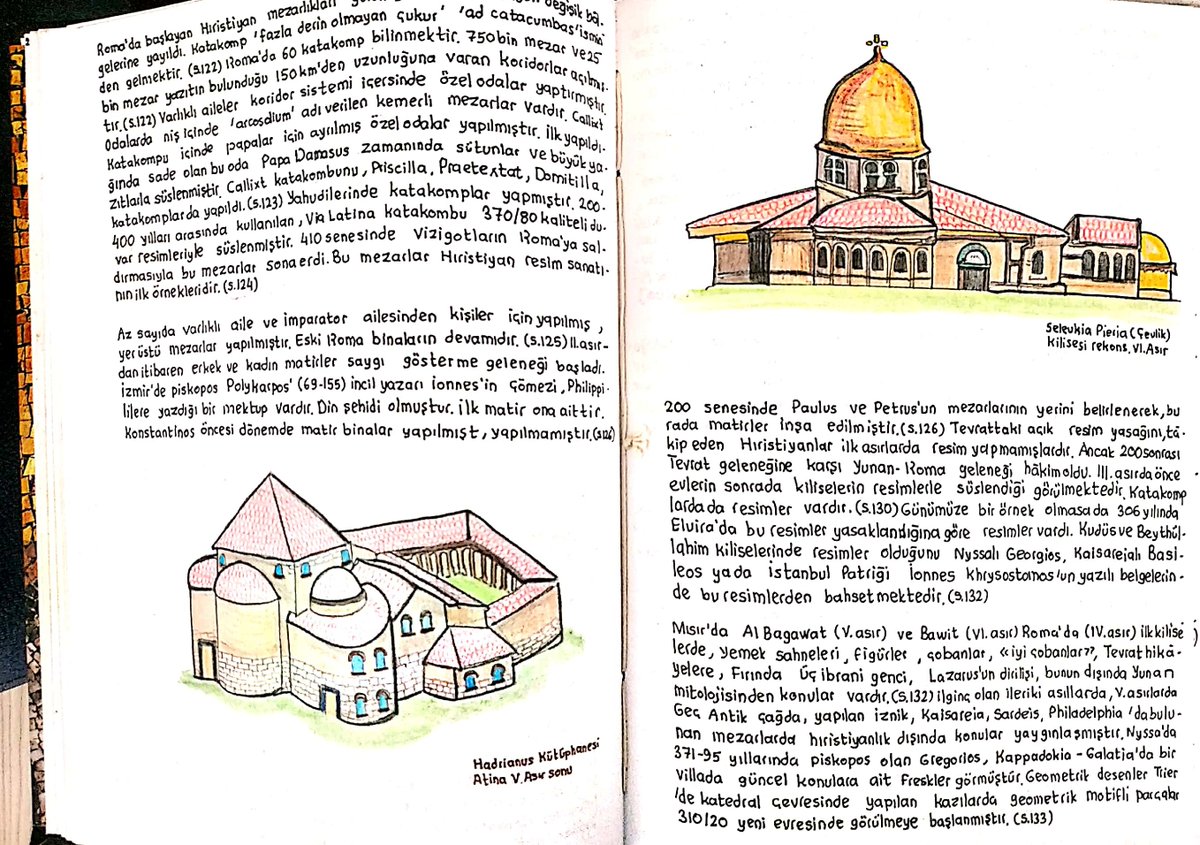 Roma'da başlayan Hıristiyan mezarlıkları değişik böl.
gelerine yayıldı. Katakomp 'fazla derin olmayan çukur' 'ad catacumbas' ismin
den gelmektir. (S.122) Roma'da 60 katakomp bilinmektir. 750 bin mezar ve 25
bin mezar yazıtın bulunduğu 150 km'den uzunluğuna varan koridorlar açılmı-
tır. (S.122) Varlıklı aileler koridor sistemi içersinde özel odalar yaptırmıştır.
Odalarda niş içinde 'arcosdium' adı verilen kemerli mezarlar vardır. Callixt
Katakompu içinde papalar için ayrılmış özel odalar yapılmıştır. İlk yapıldı-
ğında sade olan bu oda Papa Damasus zamanında sütunlar ve büyük ya-
zıtlarla süslenmiştir. Callixt katakombunu, Priscilla, Praetextat, Domitilla,
katakomplarda yapıldı. (S.123) Yahudilerinde katakomplar yapmıştır. 200-
400 yılları arasında kullanılan, Via Latina katakombu 370/80 kaliteli du-
var resimleriyle süslenmiştir. 410 senesinde Vizigotların Roma'ya sal-
dırmasıyla bu mezarlar sona erdi. Bu mezarlar Hıristiyan resim sanatı-
nın ilk örnekleridir. (S.124)
Az sayıda varlıklı aile ve imparator ailesinden kişiler için yapılmış,
yer üstü mezarlar yapılmıştır. Eski Roma binaların devamıdır. (S.125) II. asır-
dan itibaren erkek ve kadın matirler saygı gösterme geleneği başladı.
İzmir'de piskopos Polykarpos' (69-155) incil yazarı İonnes'in Çömezi, Philippi-
lilere yazdığı bir mektup vardır. Din şehidi olmuştur. İlk matir ona aittir.
Konstantinos öncesi dönemde matir binalar yapılmışt, yapılmamıştır. (S.126)
Hadrianus Kütüphanesi
Atina V. Asır sonu
Seleukia Pieria (Çevlik)
Kilisesi rekons. VI. Asır
200 senesinde Paulus ve Petrus'un mezarlarının yerini belirlenerek, bu
rada matirler inşa edilmiştir. (S.126) Tevrattaki açık resim yasağını, ta-
kip eden Hıristiyanlar ilk asırlarda resim yapmamışlardır. Ancak 200 sonrası
Tevrat geleneğine karşı Yunan-Roma geleneği hâkim oldu. III. asırda önce
evlerin sonrada kiliselerin resimlerle süslendiği görülmektedir. Katakomp
larda da resimler vardır. (S.130) Günümüze bir örnek olmasa da 306 yılında
Elvira'da bu resimler yasaklandığına göre resimler vardı. Kudüs ve Beythül-
lahim kiliselerinde resimler olduğunu Nyssalı Georgios, Kaisareialı Basi-
leos ya da İstanbul Patriği İonnes Khrysostomos'un yazılı belgelerin-
de bu resimlerden bahsetmektedir. (S.132)
Mısır'da Al Bagawat (V. asır) ve Bawit (VI. asır) Roma'da (IV. asır) ilk kilise
lerde, yemek sahneleri, figürler, çobanlar, «iyi çobanlar», Tevrat hikâ-
yelere, Fırında Üç ibrani genci, Lazarus'un dirilişi, bunun dışında Yunan
mitolojisinden konular vardır. (S.132) İlginç olan ileriki asıllarda, V. asılarda
Geç Antik çağda, yapılan iznik, Kaisareia, Sardeis, Philadelphia 'da bulu-
nan mezarlarda hıristiyanlık dışında konular yaygınlaşmıştır. Nyssa'da
371-95 yıllarında piskopos olan Gregorios, Kappadokia - Galatia'da bir
villada güncel konulara ait freskler görmüştür. Geometrik desenler Trier
'de katedral çevresinde yapılan kazılarda geometrik motifli parçalar
310/20 yeni evresinde görülmeye başlanmıştır. (S.133)